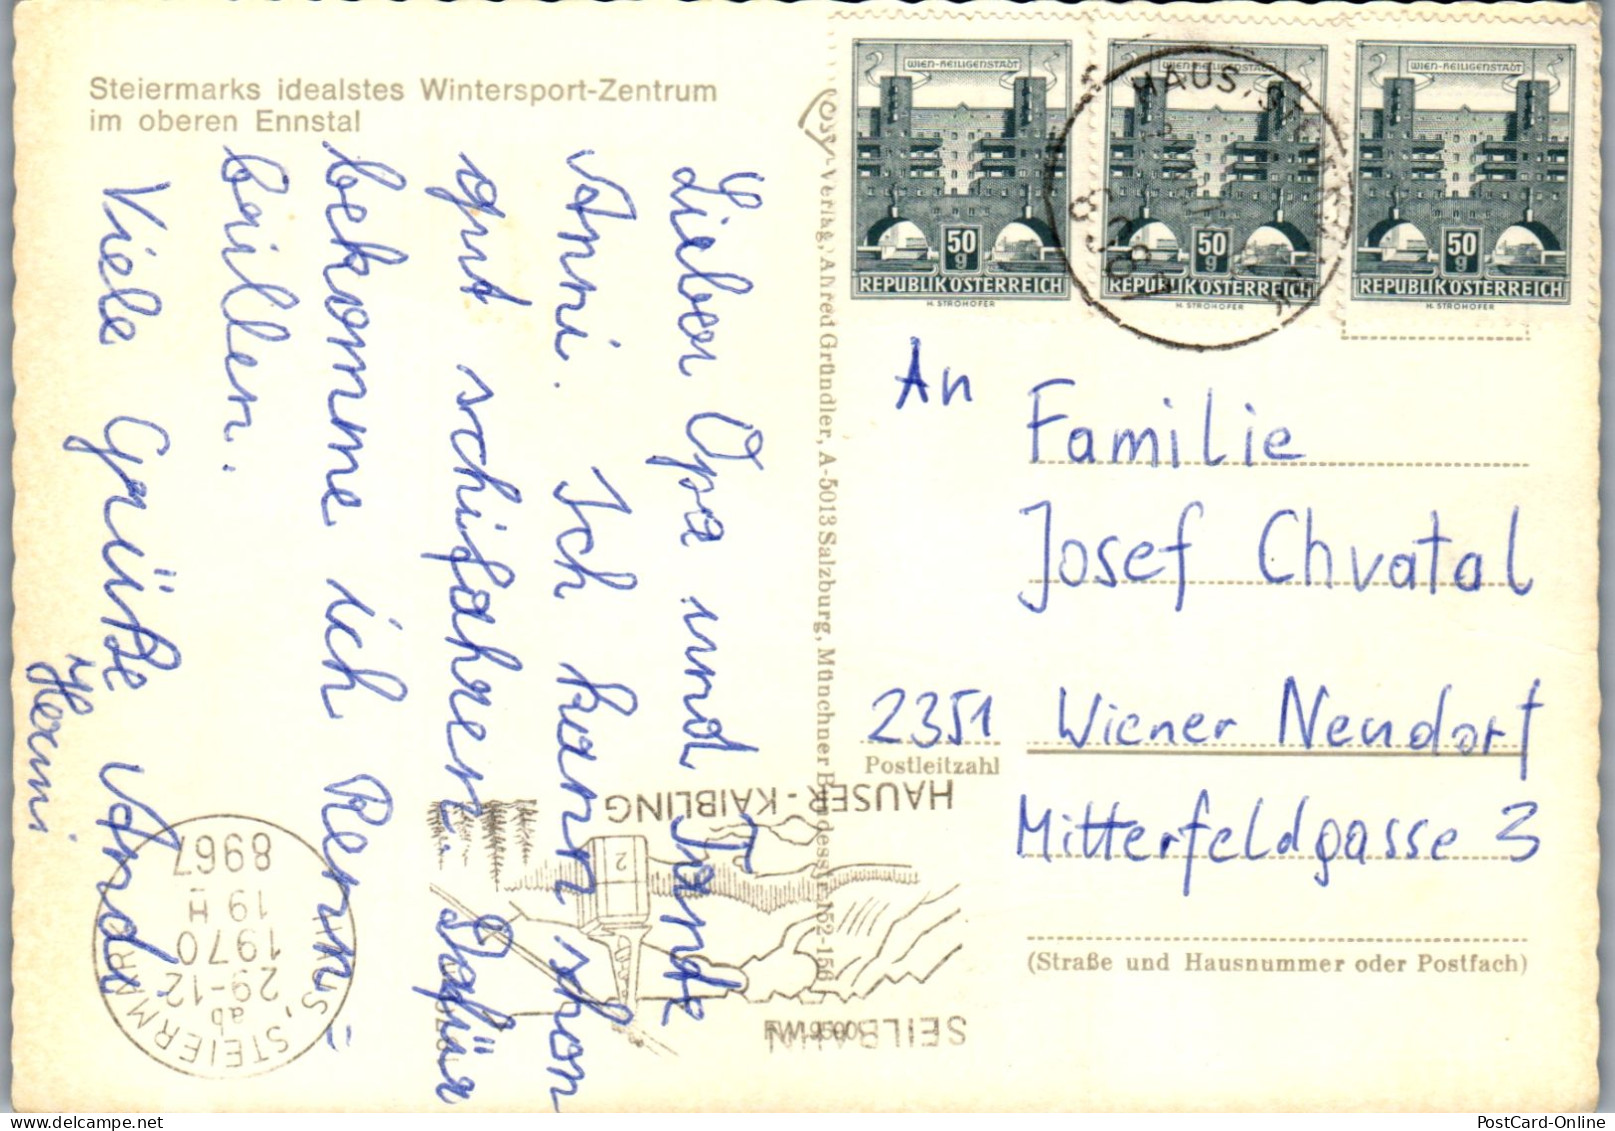 Steiermarks idealstes Wintersport-Zentrum
im oberen Ennstal
Lieber Opa und Tante
Anni. Ich kann schon
gut schifahren. Dafür
bekomme ich Rennü-
brillen.
Viele Grüße Andi
Hermi
Cosy-Verlag, Alfred Gründler, A-5013 Salzburg, Münchner Bundesstr. 152-156
WIEN-HEILIGENSTADT
50
g
REPUBLIK ÖSTERREICH
H. STROHOFER
WIEN-HEILIGENSTADT
50
g
REPUBLIK ÖSTERREICH
H. STROHOFER
WIEN-HEILIGENSTADT
50
g
REPUBLIK ÖSTERREICH
H. STROHOFER
An
Familie
Josef Chvatal
2351 Wiener Neudorf
Postleitzahl
Mitterfeldgasse 3
(Straße und Hausnummer oder Postfach)
HAUSER-KAIBLING
2
SEILBAHN
HAUS, STEIERMARK
ab
29-12
1970
19 II
8967
PostCard-Online